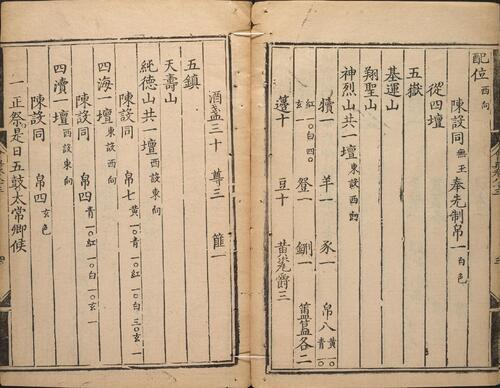 配位 西向
陳設同 無玉 奉先制帛一 白色
從四壇
五嶽
基運山
翔聖山
神烈山共一壇 東設西向
犢一 羊一 豕一 帛八 黃一〇青一〇
紅一〇白四〇玄一 登一 鉶一 簠簋各二
籩十 豆十 黃瓷爵三
酒盞三十 尊三 篚一
五鎮
天壽山
純德山共一壇 西設東向
陳設同 帛七 黃一〇青一〇紅一〇白三〇玄一
四海一壇 東設西向
陳設同 帛四 青一〇紅一〇白一〇玄一
四瀆一壇 西設東向
陳設同 帛四 玄色
一正祭是日五鼓太常卿候